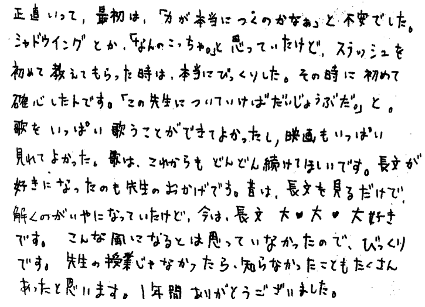 正直いって、最初は、「力が本当につくのかなぁ」と不安でした。
シャドウイングとか、「なんのこっちゃ。」と思っていたけど、スラッシュを
初めて教えてもらった時は、本当にびっくりした。その時に初めて
確心したんです。「この先生についていけばだいじょうぶだ。」と。
歌をいっぱい歌うことができてよかったし、映画もいっぱい
見れてよかった。歌は、これからもどんどん続けてほしいです。長文が
好きになったのも先生のおかげです。昔は、長文を見るだけで、
解くのがいやになっていたけど、今は、長文 大♥大♥大好き
です。 こんな風になるとは思っていなかったので、びっくり
です。 先生の授業じゃなかったら、知らなかったこともたくさん
あったと思います。1年間ありがとうございました。